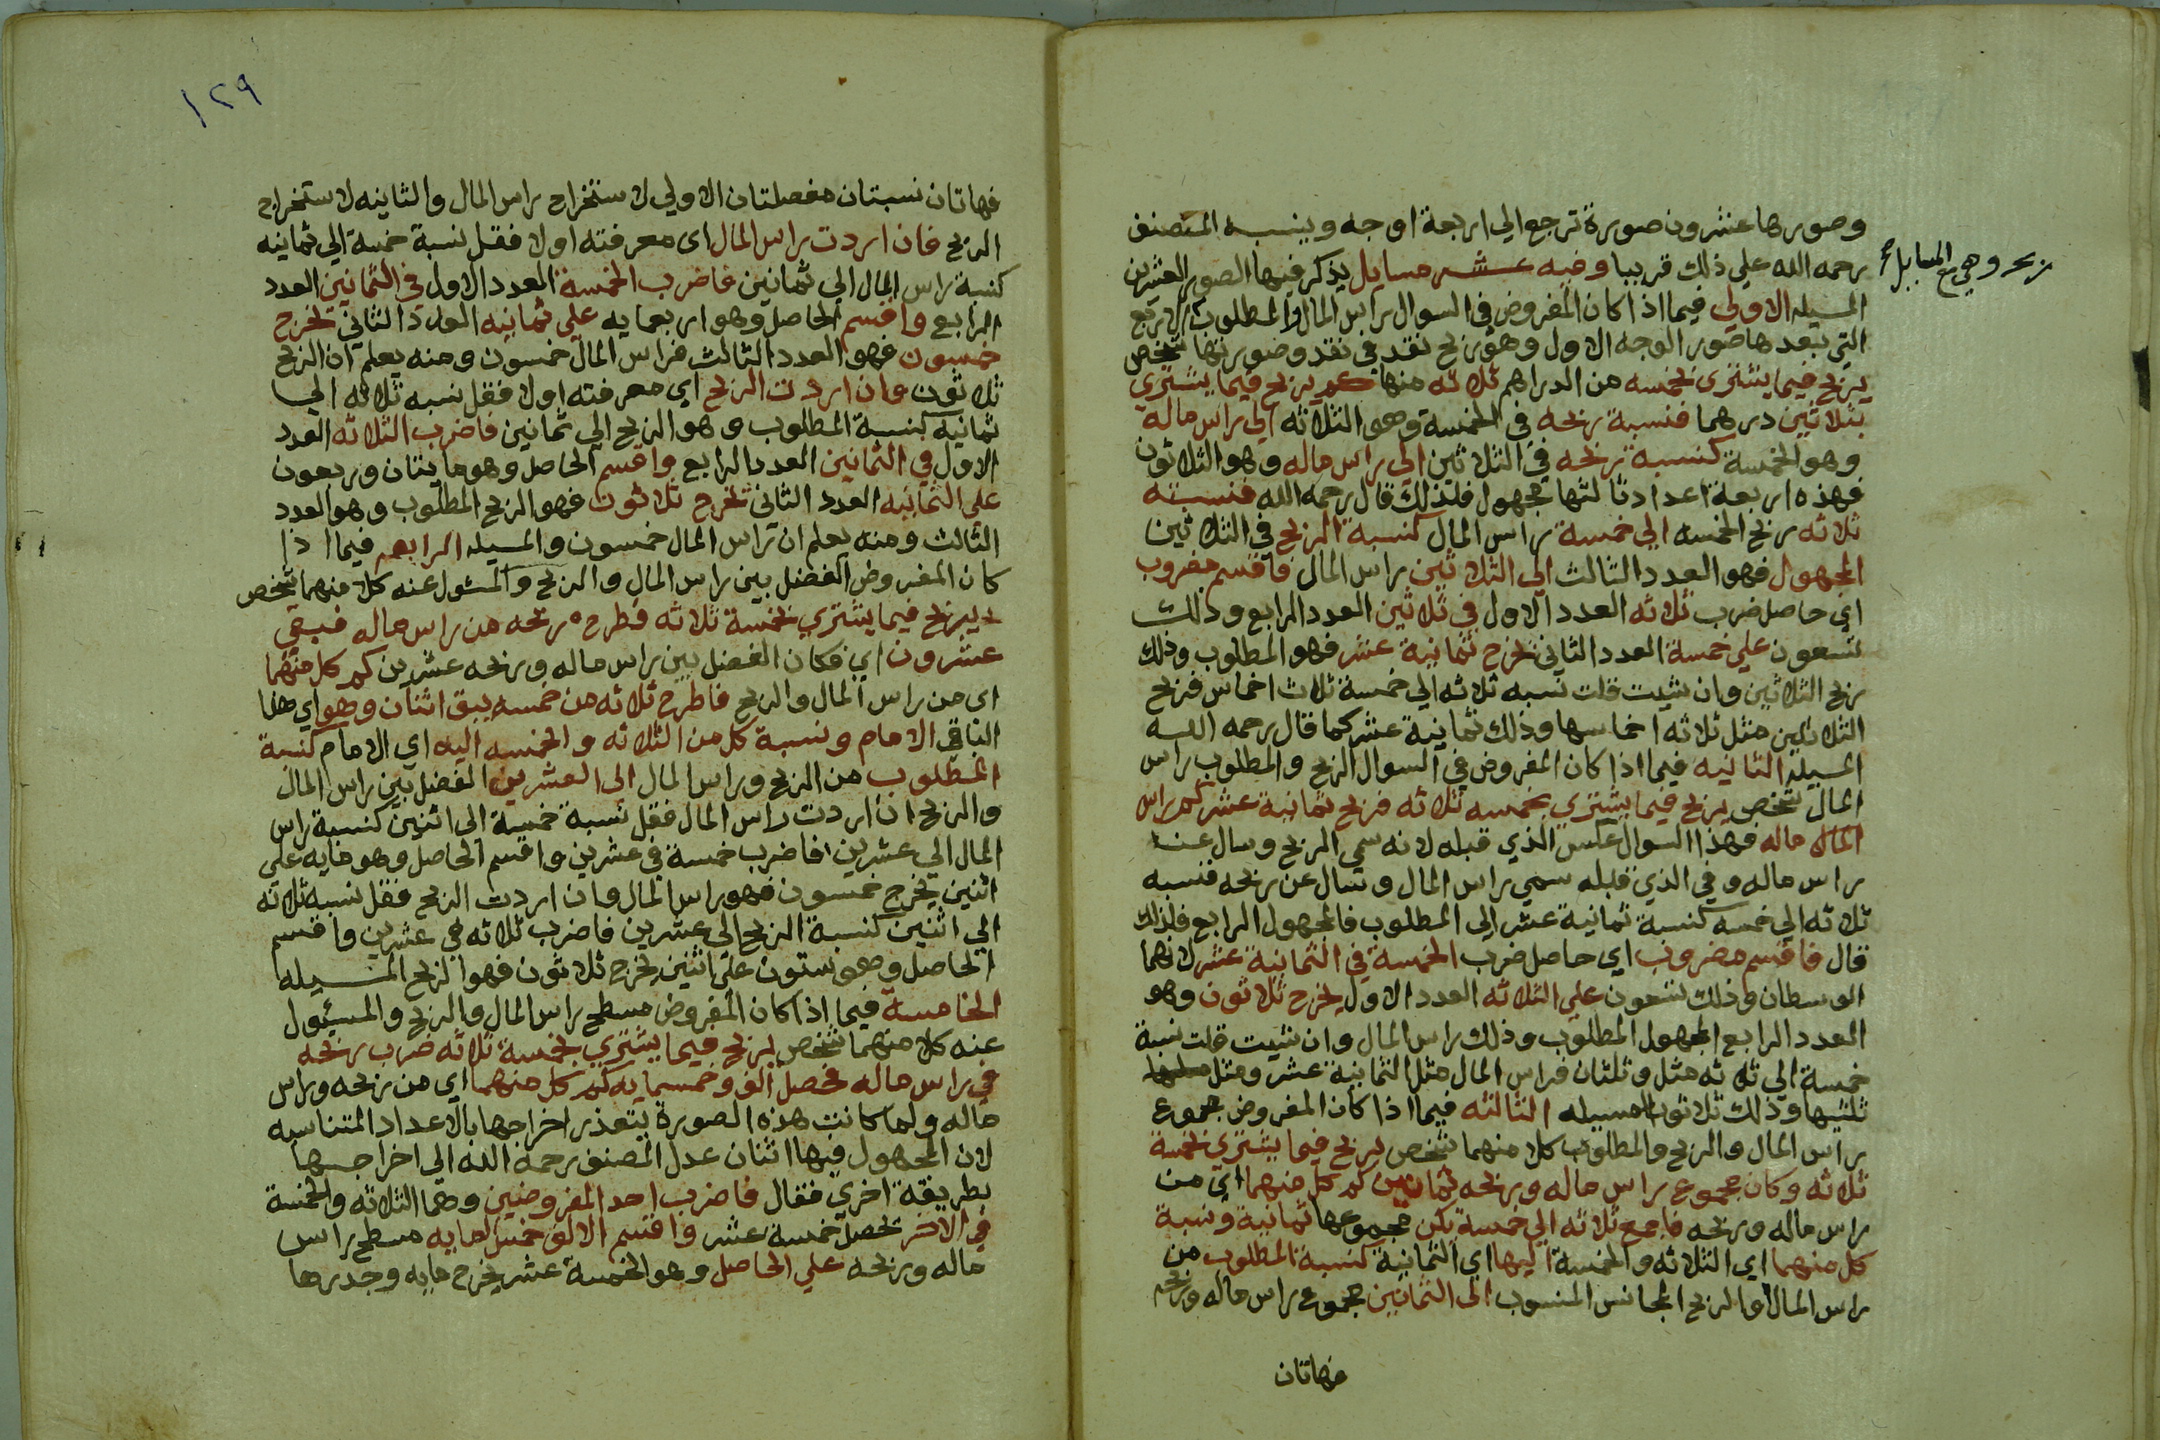 وصورها عشرون صورة ترجع الي اربعة اوجه وينبه المصنف
رحمه الله علي ذلك قريبا وفيه عشر مسايل يذكر فيها الصور العشرين
المسيله الاولي فيما اذا كان المفروض في السوال راس المال والمطلوب الربح
التي بعدها صور الوجه الاول وهو ربح نقد في نقد وصورتها شخص
يربح فيما يشتري بخمسه من الدراهم ثلاثه منها كم يربح فيما يشتري
بثلاثين درهما فنسبة ربحه في الخمسة وهو الثلاثه الي راس ماله
وهو الخمسة كنسبة ربحه في الثلاثين الي راس ماله وهو الثلاثون
فهذه اربعة اعداد ثالثها مجهول فلذلك قال رحمه الله فنسبة
ثلاثه ربح الخمسه الي خمسة راس المال كنسبة الربح في الثلاثين
المجهول فهو العدد الثالث الي الثلاثين راس المال فاقسم مضروب
اي حاصل ضرب ثلاثه العدد الاول في ثلاثين العدد الرابع وذلك
تسعون علي خمسة العدد الثاني تخرج ثمانية عشر فهو المطلوب وذلك
ربح الثلاثين وان شيت قلت نسبه ثلاثه الي خمسة ثلاث اخماس فربح
الثلاثين مثل ثلاثه اخماسها وذلك ثمانية عشر كما قال رحمه الله
المسيله الثانيه فيما اذا كان المفروض في السوال الربح والمطلوب راس
المال شخص يربح فيما يشتري بخمسه ثلاثه فربح ثمانية عشر كم راس
المال ماله فهذا السوال عكس الذي قبله لانه سمي الربح وسال عن
راس ماله وفي الذي قبله سمي راس المال وسال عن ربحه فنسبه
ثلاثه الي خمسه كنسبة ثمانية عشر الي المطلوب فالمجهول الرابع فلذلك
قال فاقسم مضروب اي حاصل ضرب الخمسة في الثمانية عشر لانهما
الوسطان وذلك تسعون علي الثلاثه العدد الاول يخرج ثلاثون وهو
العدد الرابع المجهول المطلوب وذلك راس المال وان شيت قلت نسبة
خمسة الي ثلاثه مثل وثلثان فراس المال مثل الثمانية عشر ومثل
ثلثيها وذلك ثلاثون المسيله الثالثه فيما اذا كان المفروض مجموع
راس المال والربح والمطلوب كلا منهما شخص يربح فيما يشتري بخمسة
ثلاثه وكان مجموع راس ماله وربحه ثمانين كم كل منهما اي من
راس ماله وربحه فاجمع ثلاثه الي خمسة يكن مجموعها ثمانية ونسبة
كل منهما اي الثلاثه والخمسة اليها اي الثمانية كنسبة المطلوب من
راس المال والربح المجانس المنسوب الي الثمانين مجموع راس ماله وربحه
فهاتان
ربحه وهي المسايل
١٢٩
فهاتان نسبتان مفصلتان الاولي لاستخراج راس المال والثانيه لاستخراج
الربح فان اردت راس المال اي معرفته اولا فقل نسبة خمسة الي ثمانيه
كنسبة راس المال الي ثمانين فاضرب الخمسة العدد الاول في الثمانين العدد
الرابع واقسم الحاصل وهو اربعمايه علي ثمانيه العدد الثاني تخرج
خمسون فهو العدد الثالث فراس المال خمسون ومنه يعلم ان الربح
ثلاثون وان اردت الربح اي معرفته اولا فقل نسبه ثلاثه الي
ثمانية كنسبة المطلوب وهو الربح الي ثمانين فاضرب الثلاثه العدد
الاول في الثمانين العدد الرابع واقسم الحاصل وهو مايتان وربعون
علي الثمانيه العدد الثاني تخرج ثلاثون فهو الربح المطلوب وهو العدد
الثالث ومنه يعلم ان راس المال خمسون والمسيله الرابعه فيما اذا
كان المفروض الفضل بين راس المال والربح والمسئول عنه كلا منهما شخص
يربح فيما يشتري بخمسة ثلاثه فطرح ربحه من راس ماله فبقي
عشرون اي فكان الفضل بين راس ماله وربحه عشرين كم كل منهما
اي من راس المال والربح فاطرح ثلاثه من خمسه يبق اثنان وهو اي هذا
الباقي الامام ونسبة كل من الثلاثه والخمسه اليه اي الامام كنسبة
المطلوب من الربح وراس المال الي العشرين الفضل بين راس المال
والربح ان اردت راس المال فقل نسبة خمسة الي اثنين كنسبة راس
المال الي عشرين فاضرب خمسة في عشرين واقسم الحاصل وهو مايه علي
اثنين يخرج خمسون فهو راس المال وان اردت الربح فقل نسبة ثلاثه
الي اثنين كنسبة الربح الي عشرين فاضرب ثلاثه في عشرين واقسم
الحاصل وهو ستون علي اثنين يخرج ثلاثون فهو الربح المسيله
الخامسة فيما اذا كان المفروض مسطح راس المال والربح والمسئول
عنه كلا منهما شخص يربح فيما يشتري بخمسة ثلاثه ضرب ربحه
في راس ماله فحصل الف وخمسمايه كم كل منهما اي من ربحه وراس
ماله ولما كانت هذه الصورة يتعذر اخراجها بالاعداد المتناسبه
لان المجهول فيها اثنان عدل المصنف رحمه الله الي اخراجها
بطريقة اخري فقال فاضرب احد المفروضين وهما الثلاثه والخمسة
في الاخر تحصل خمسة عشر واقسم الالف خمسمايه مسطح راس
ماله وربحه علي الحاصل وهو الخمسة عشر يخرج مايه وجدرها